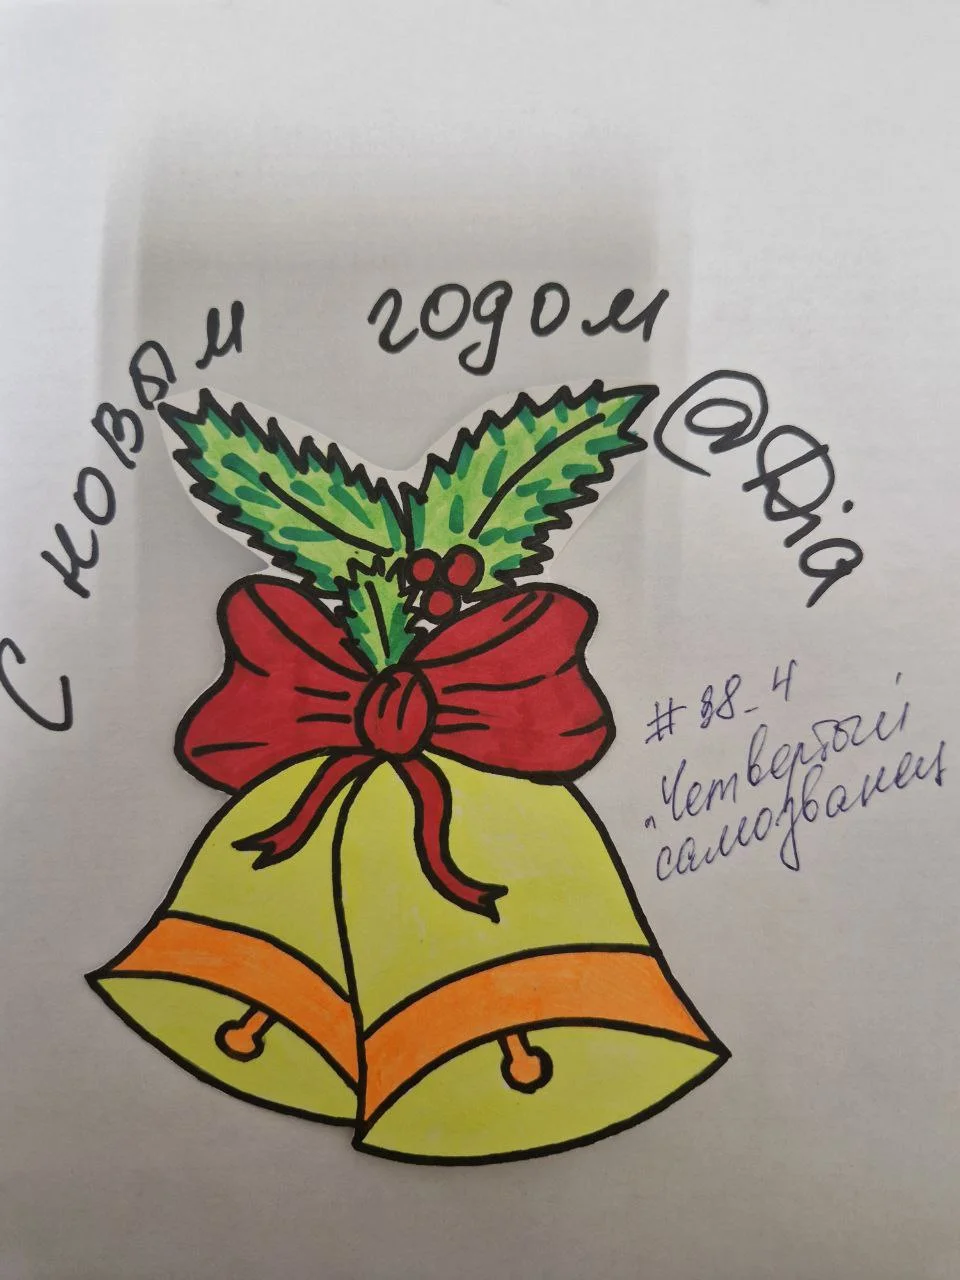 С новым годом @Dia
#38_4
"Четвертый
самозванец